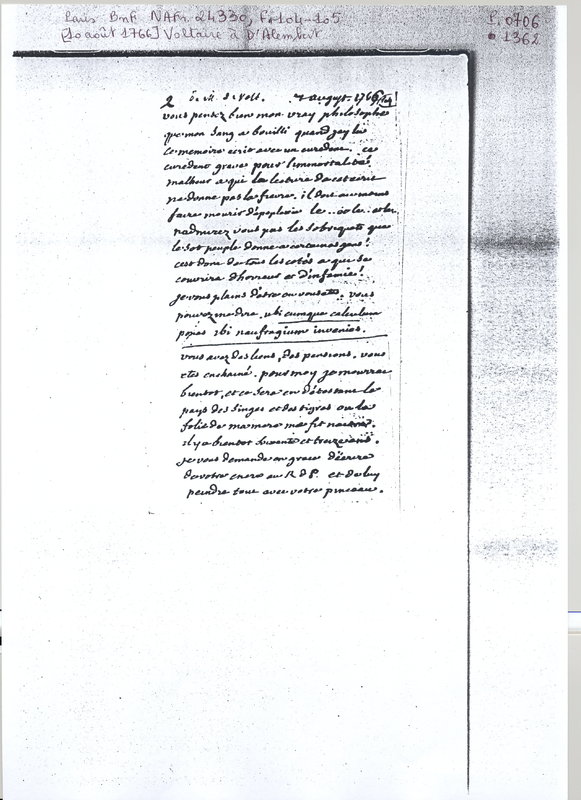 Paris BnF NAFr. 24330, f. 104-105
[10 août 1766] Voltaire à D'Alembert
P. 0706
1362
2 De M. de Volt. 7 august. 1766 104
vous pensez bien mon vray philosophe
que mon sang a bouilli quand jay lu
ce memoire ecrit avec un curedent. ce
curedent grave pour l'immortalité.
malheur a qui la lecture de cet écrit
ne donne pas la fievre. il doit au moins
faire mourir d'apoplexie le
nadmirez vous pas les sobriquets que
le sot peuple donne a certaines gens!
cest donc de tous les cotés a qui se
couvrira d'horreur et d'infamie!
je vous plains d'etre ou vous etes. vous
pouvez me dire. ubi cumque calculum
ponas ibi naufragium invenies.
vous avez des liens, des pensions, vous
etes enchainé. pour moy je mourrai
bientot, et ce sera en détestant le
pays des singes et des tigres ou la
folie de ma mere me fit naitre.
il y a bientot soixante et treize ans.
je vous demande en grace d'ecrire
de votre encre au R d P. et de luy
peindre tout avec votre pinceau.